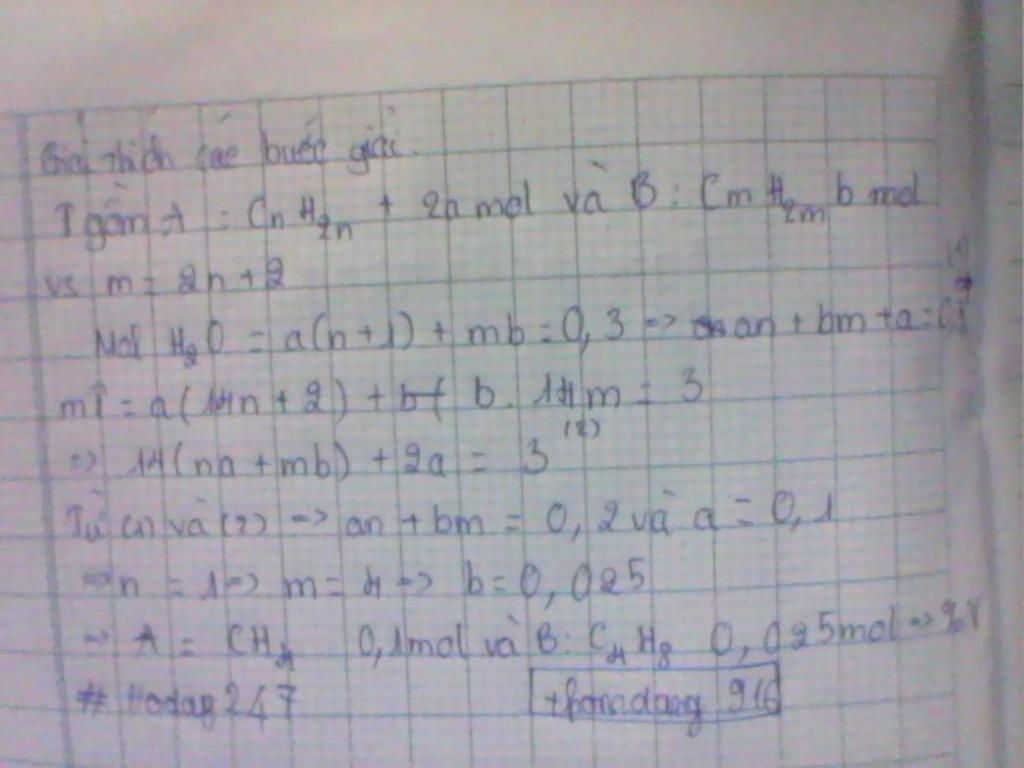 Giải thích các bước giải.
T gồm A : CnH2n + 2a mol và B : CmH2m b mol
vs m = 2n + 2
Mol H2O = a(n+1) + mb = 0,3 => an + bm + a = 0,3 (1)
mT = a(14n + 2) + b. 14m = 3
=> 14(na + mb) + 2a = 3 (2)
Từ (1) và (2) => an + bm = 0,2 và a = 0,1
=> n = 1 => m = 4 => b = 0,025
=> A = CH4 0,1mol và B: C4H8 0,025mol =>
# Hoday247